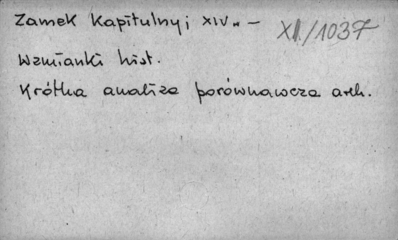 Zamek Kapitulny; XIV w –
XI/1037
Wzmianki hist.
Krótka analiza porównawcza arch.